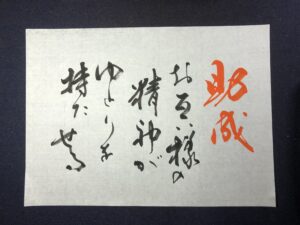 助成
お互い様の
精神が
ゆとりを
持たせる